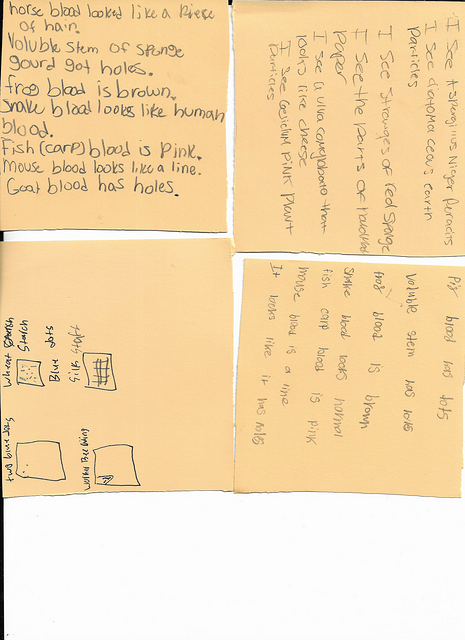 horse blood looked like a Piece
of hair.
Voluble stem of sponge
gourd got holes.
frog blood is brown.
Snake blood looks like human
blood.
Fish (carp) blood is Pink.
Mouse blood looks like a line.
Goat blood has holes.
I see Aspergillus Niger
Particles
I see diatoma ceous earth
I see stranges of red sponge
I see the parts of
Paper
I see a ulva that
looks like cheese
I see Gelidium Pink Plant
Particles
Wheat
Starch
Blue dots
Silk staff
two blue dots
Pig blood has dots
Voluble stem has dots
frog blood is brown
Snake blood looks normal
fish carp blood is pink
mouse blood is a line
It looks like it has holes